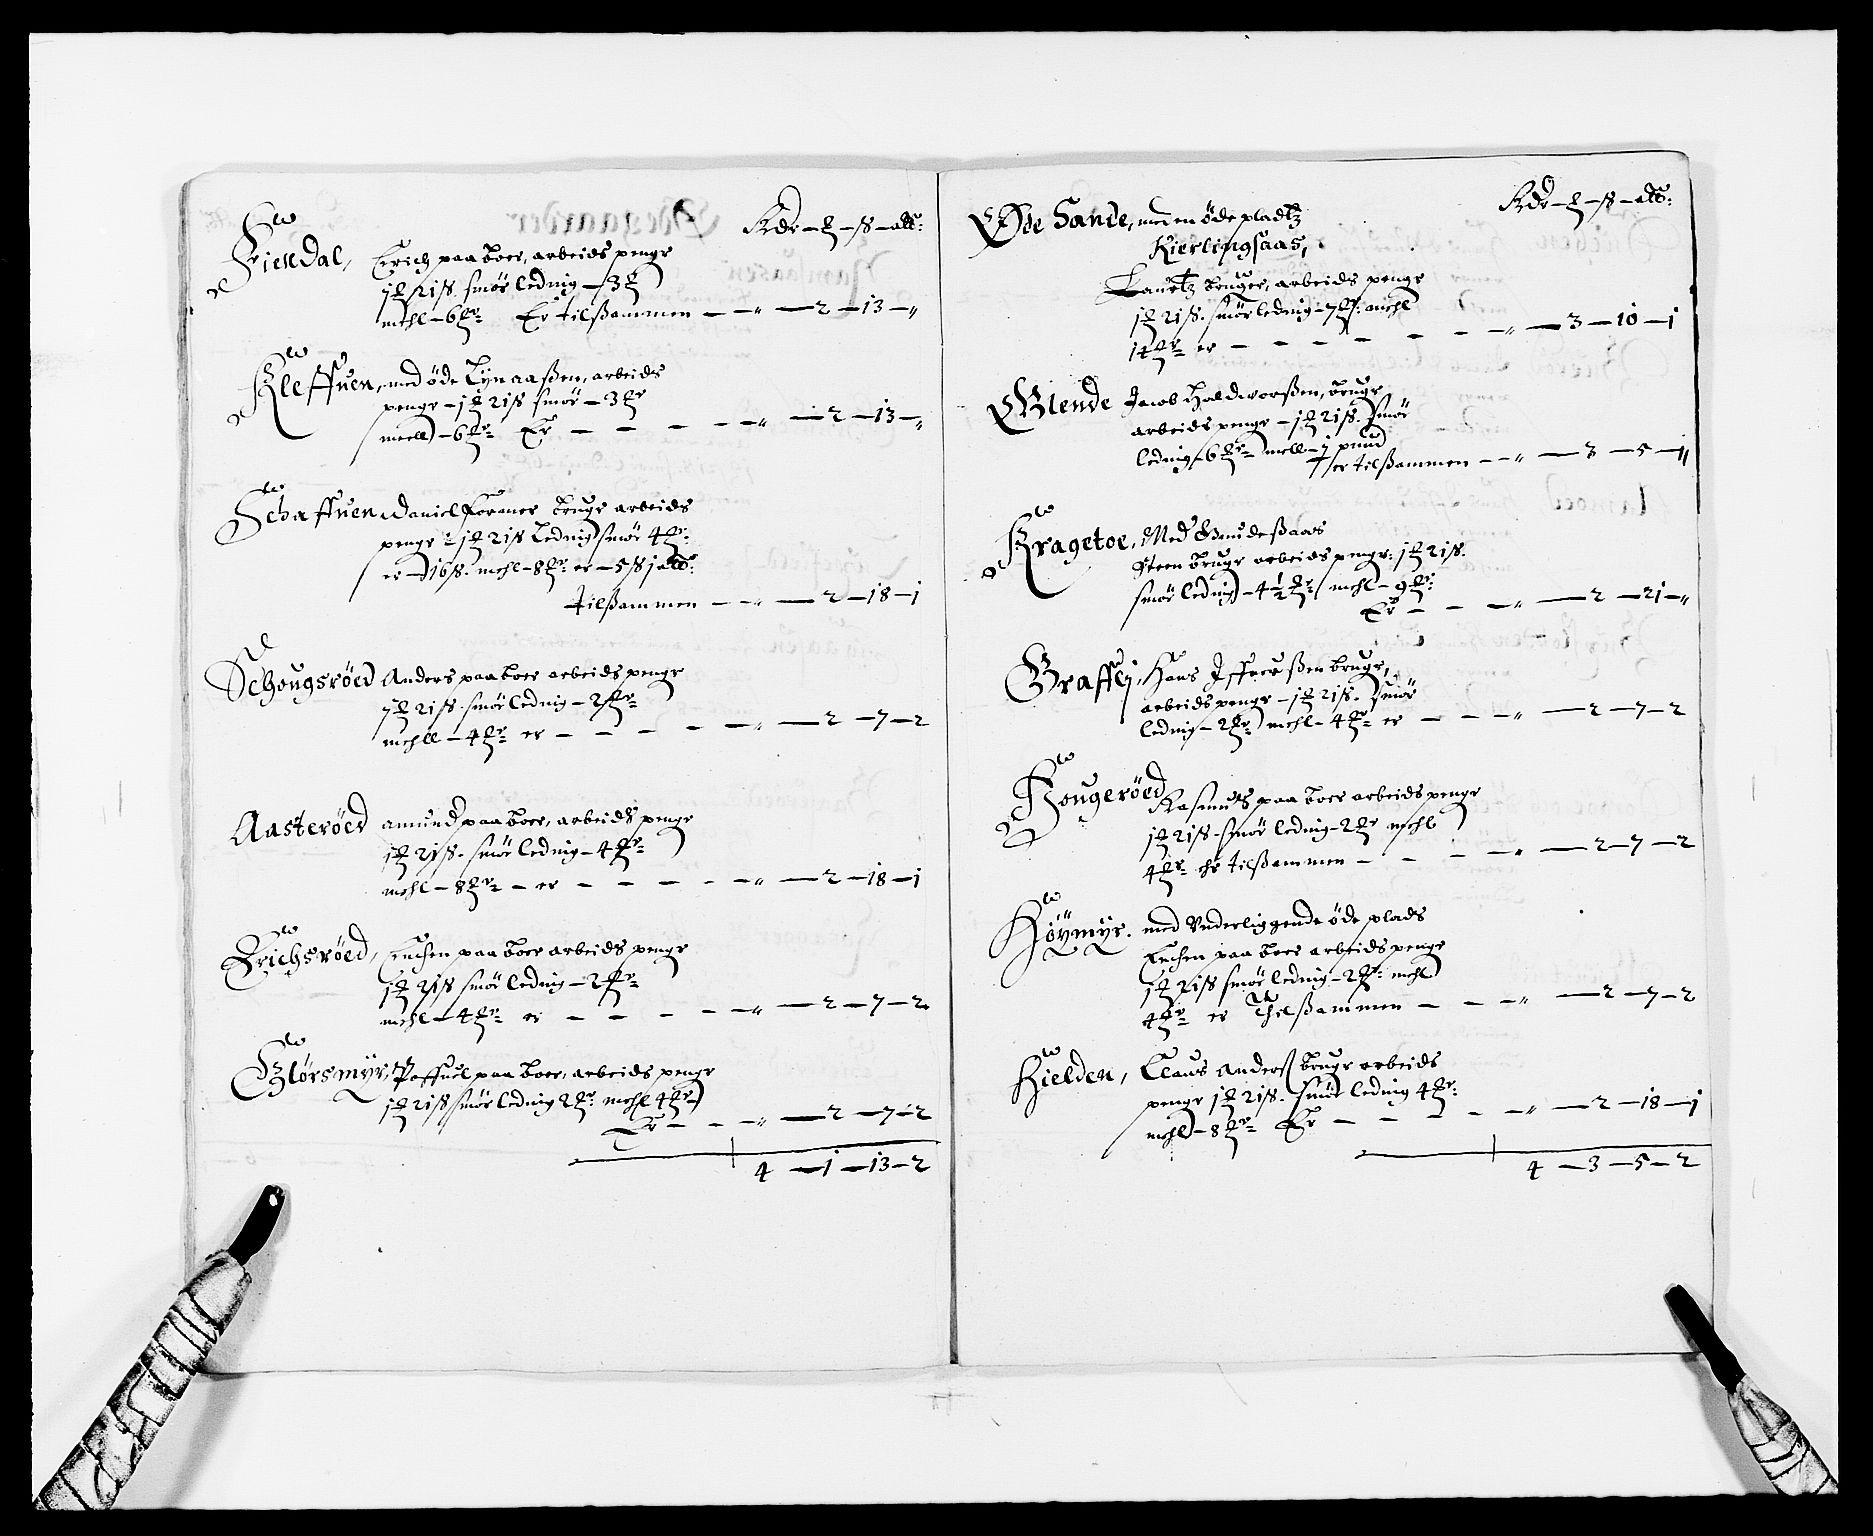 Rdr — ₰ — ß — alb:
Fiendal, Erich paa boer, arbeids penge
1 ₰ 21 ß. smör leding — 3 ₰
mehl — 6 ₰r Er tilßammen — — „ — 2 — 13 — „
Kleffuen, med öde Lynaaßen, arbeids
penge — 1 ₰ 21 ß smör — 3 ₰r
meell — 6 ₰r Er — — — — „ — 2 — 13 — „
Schaffuen, Daniel bruger arbeids
penge — 1 ₰ 21 ß Leding smör 4 ₰r
er — 16 ß. mehl — 8 ₰r er — 5 ß 1 alb:
Tilßammen — — „ — 2 — 18 — 1
Schougsröed Anders paa boer arbeids penge
1 ₰ 21 ß. smör leding — 2 ₰r
mehll — 4 ₰r er — — — — „ — 2 — 7 — 2
Aasteröed amund paa boer, arbeids penge
1 ₰ 21 ß. smör leding — 4 ₰r
mehl — 8 ₰r — er — — — — „ — 2 — 18 — 1
Erichsröed, paa boer arbeids penge
1 ₰ 21 ß smör leding — 2 ₰r
mehl — 4 ₰r er — — — — „ — 2 — 7 — 2
Glörsmyr, Poffuel paa boer, arbeids penge
1 ₰ 21 ß smör leding 2 ₰r mehl 4 ₰r
Er — — „ — 2 — 7 — 2
4 — 1 — 13 — 2
Rdr — ₰ — ß — alb:
Öde Sande, med en öde pladtz
Kierlingsaas,
Lauritz bruger, arbeids penge
1 ₰ 21 ß. smör leding — 7 ₰r. mehl
14 ₰r er — — — — — — „ — 3 — 10 — 1
Glende Jacob Holdworßen, bruger
arbeids penge — 1 ₰ 21 ß. smör
leding — 6 ₰r mell — 1 pund
er tilßammen — — „ — 3 — 5 — „
Kragetoe, Med Gmudeßaas
Steen bruger arbeids penge: 1 ₰ 21 ß.
smör leding — 4½ ₰r mehl — 9 ₰r:
Er — — — „ — 2 — 21 — „
Graffli, Hans Iffuerßen bruger,
arbeids penge — 1 ₰ 21 ß. smör
leding — 2 ₰r mehl — 4 ₰r er — — — „ — 2 — 7 — 2
Hougeröed Rasmus paa boer arbeids penge
1 ₰ 21 ß. smör leding — 2 ₰r mehl
4 ₰r ehr tilßammen — — — — „ — 2 — 7 — 2
Höymyr. med Vnderliggende öde plads
paa boer arbeids penge
1 ₰ 21 ß smör leding — 2 ₰r mehl
4 ₰r er Thilßammen — — — „ — 2 — 7 — 2
Hielden, Claus Anderß bruger arbeids
penge 1 ₰ 21 ß. smör leding 4 ₰r:
mehl — 8 ₰r Er — — — — „ — 2 — 18 — 1
4 — 3 — 5 — 2